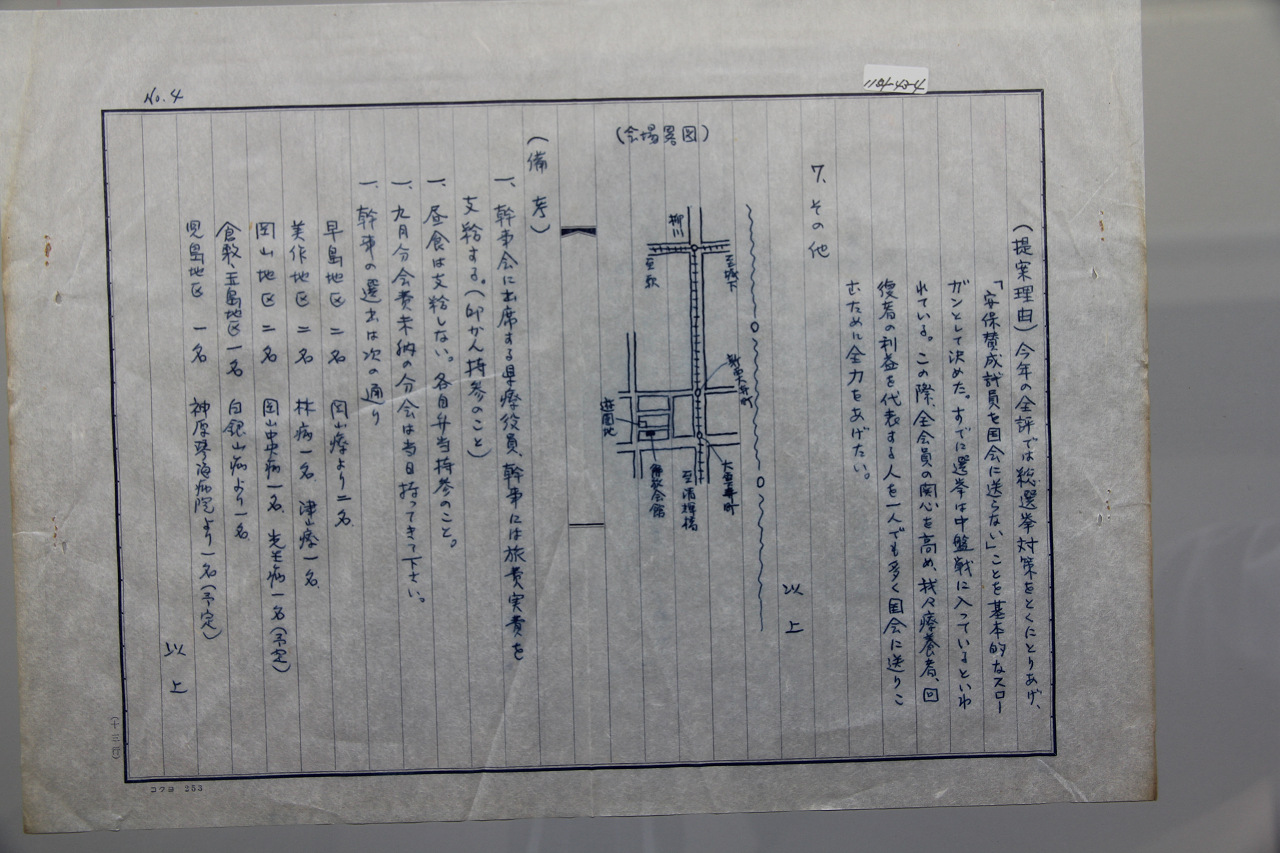 No. 4
1104-43-4
(提案理由)今年の全評では総選挙対策をとくにとりあげ、
「安保賛成議員を国会に送らない」ことを基本的なスロー
ガンとして決めた。すでに選挙は中盤戦に入っているといわ
れている。この際、全会員の関心を高め、我々療養者、回
復者の利益を代表する人を一人でも多く国会に送りこ
むために全力をあげたい。
7、その他
以上
(会場畧図)
柳川
至城下
至駅
新西大寺町
大雲寺町
至清輝橋
遊園地
会館
(備考)
一、幹事会に出席する県療役員、幹事には旅費実費を
支給する。(印かん持参のこと)
一、昼食は支給しない。各自弁当持参のこと。
一、九月分会費未納の分会は当日持ってきて下さい。
一、幹事の選出は次の通り
早島地区 二名 岡山療より二名
美作地区 二名 林病一名 津山療一名
岡山地区 二名 岡山中央病一名、光生病一名(予定)
倉敷、玉島地区一名 白銀山病より一名
児島地区 一名 神原琴海病院より一名(予定)
以上
(十三行)
コクヨ 253